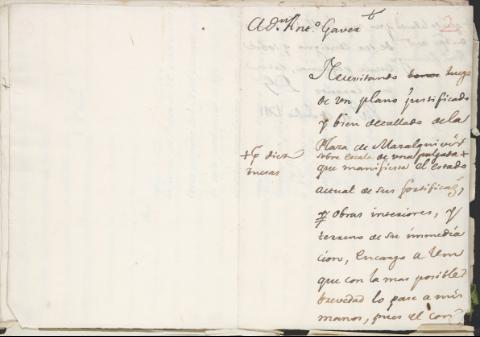 A Dn Anto Gaver
Necesitando luego
de un plano justificado
y bien detallado de la
Plaza de Mazalquivir
sobre escala de una pulgada +
+ p diez
tuesas
que manifieste el estado
actual de sus fortificaz,
y obras interiores, y
terreno de su immedia
cion, Encargo a Vm
que con la mas posible
brevedad lo pase a mis
manos, pues el con